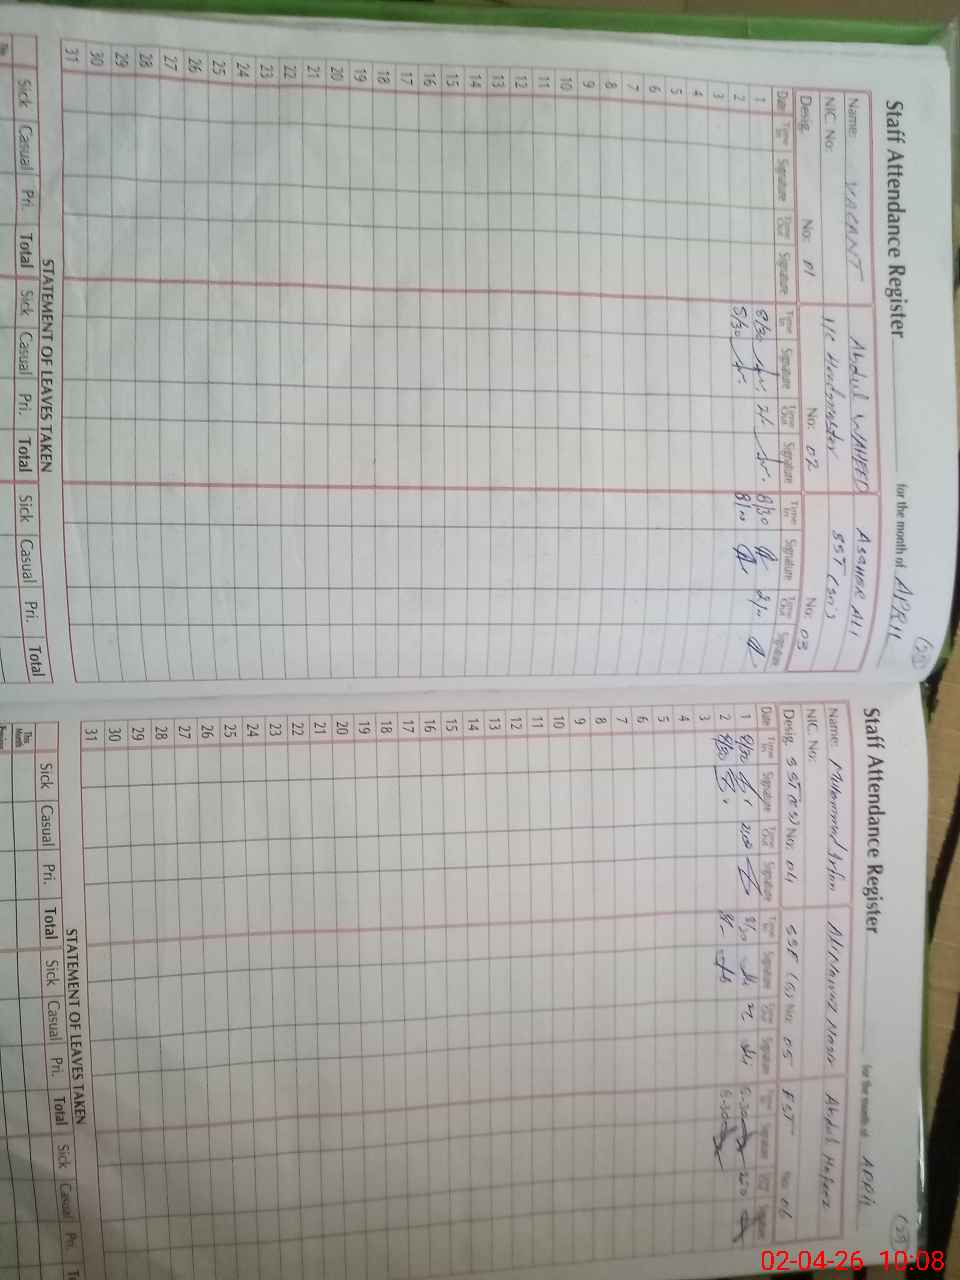 Staff Attendance Register
for the month of APRIL
Name: VACANT
Abdul WAHEED
ASGHER ALI
NIC. No:
I/C Headmaster
SST (Sci)
Desig. No: 01
No: 02
No: 03
Date Time In Signature Time Out Signature Time In Signature Time Out Signature Time In Signature Time Out Signature
1 8/30 8/30 2/..
2 8/30 8/..
3
4
5
6
7
8
9
10
11
12
13
14
15
16
17
18
19
20
21
22
23
24
25
26
27
28
29
30
31
STATEMENT OF LEAVES TAKEN
Sick Casual Pri. Total Sick Casual Pri. Total Sick Casual Pri. Total
Staff Attendance Register
for the month of APRIL
Name: Muhammad
Abdul Hafeez
NIC. No:
Desig. No: 04
No: 05 EST No: 06
Date Time In Signature Time Out Signature Time In Signature Time Out Signature Time In Signature Time Out Signature
1 8/30 2:00 8/30 8-30 2:00
2 8/30 8-30
3
4
5
6
7
8
9
10
11
12
13
14
15
16
17
18
19
20
21
22
23
24
25
26
27
28
29
30
31
STATEMENT OF LEAVES TAKEN
Sick Casual Pri. Total Sick Casual Pri. Total Sick Casual Pri.
This Month
02-04-26 10:08